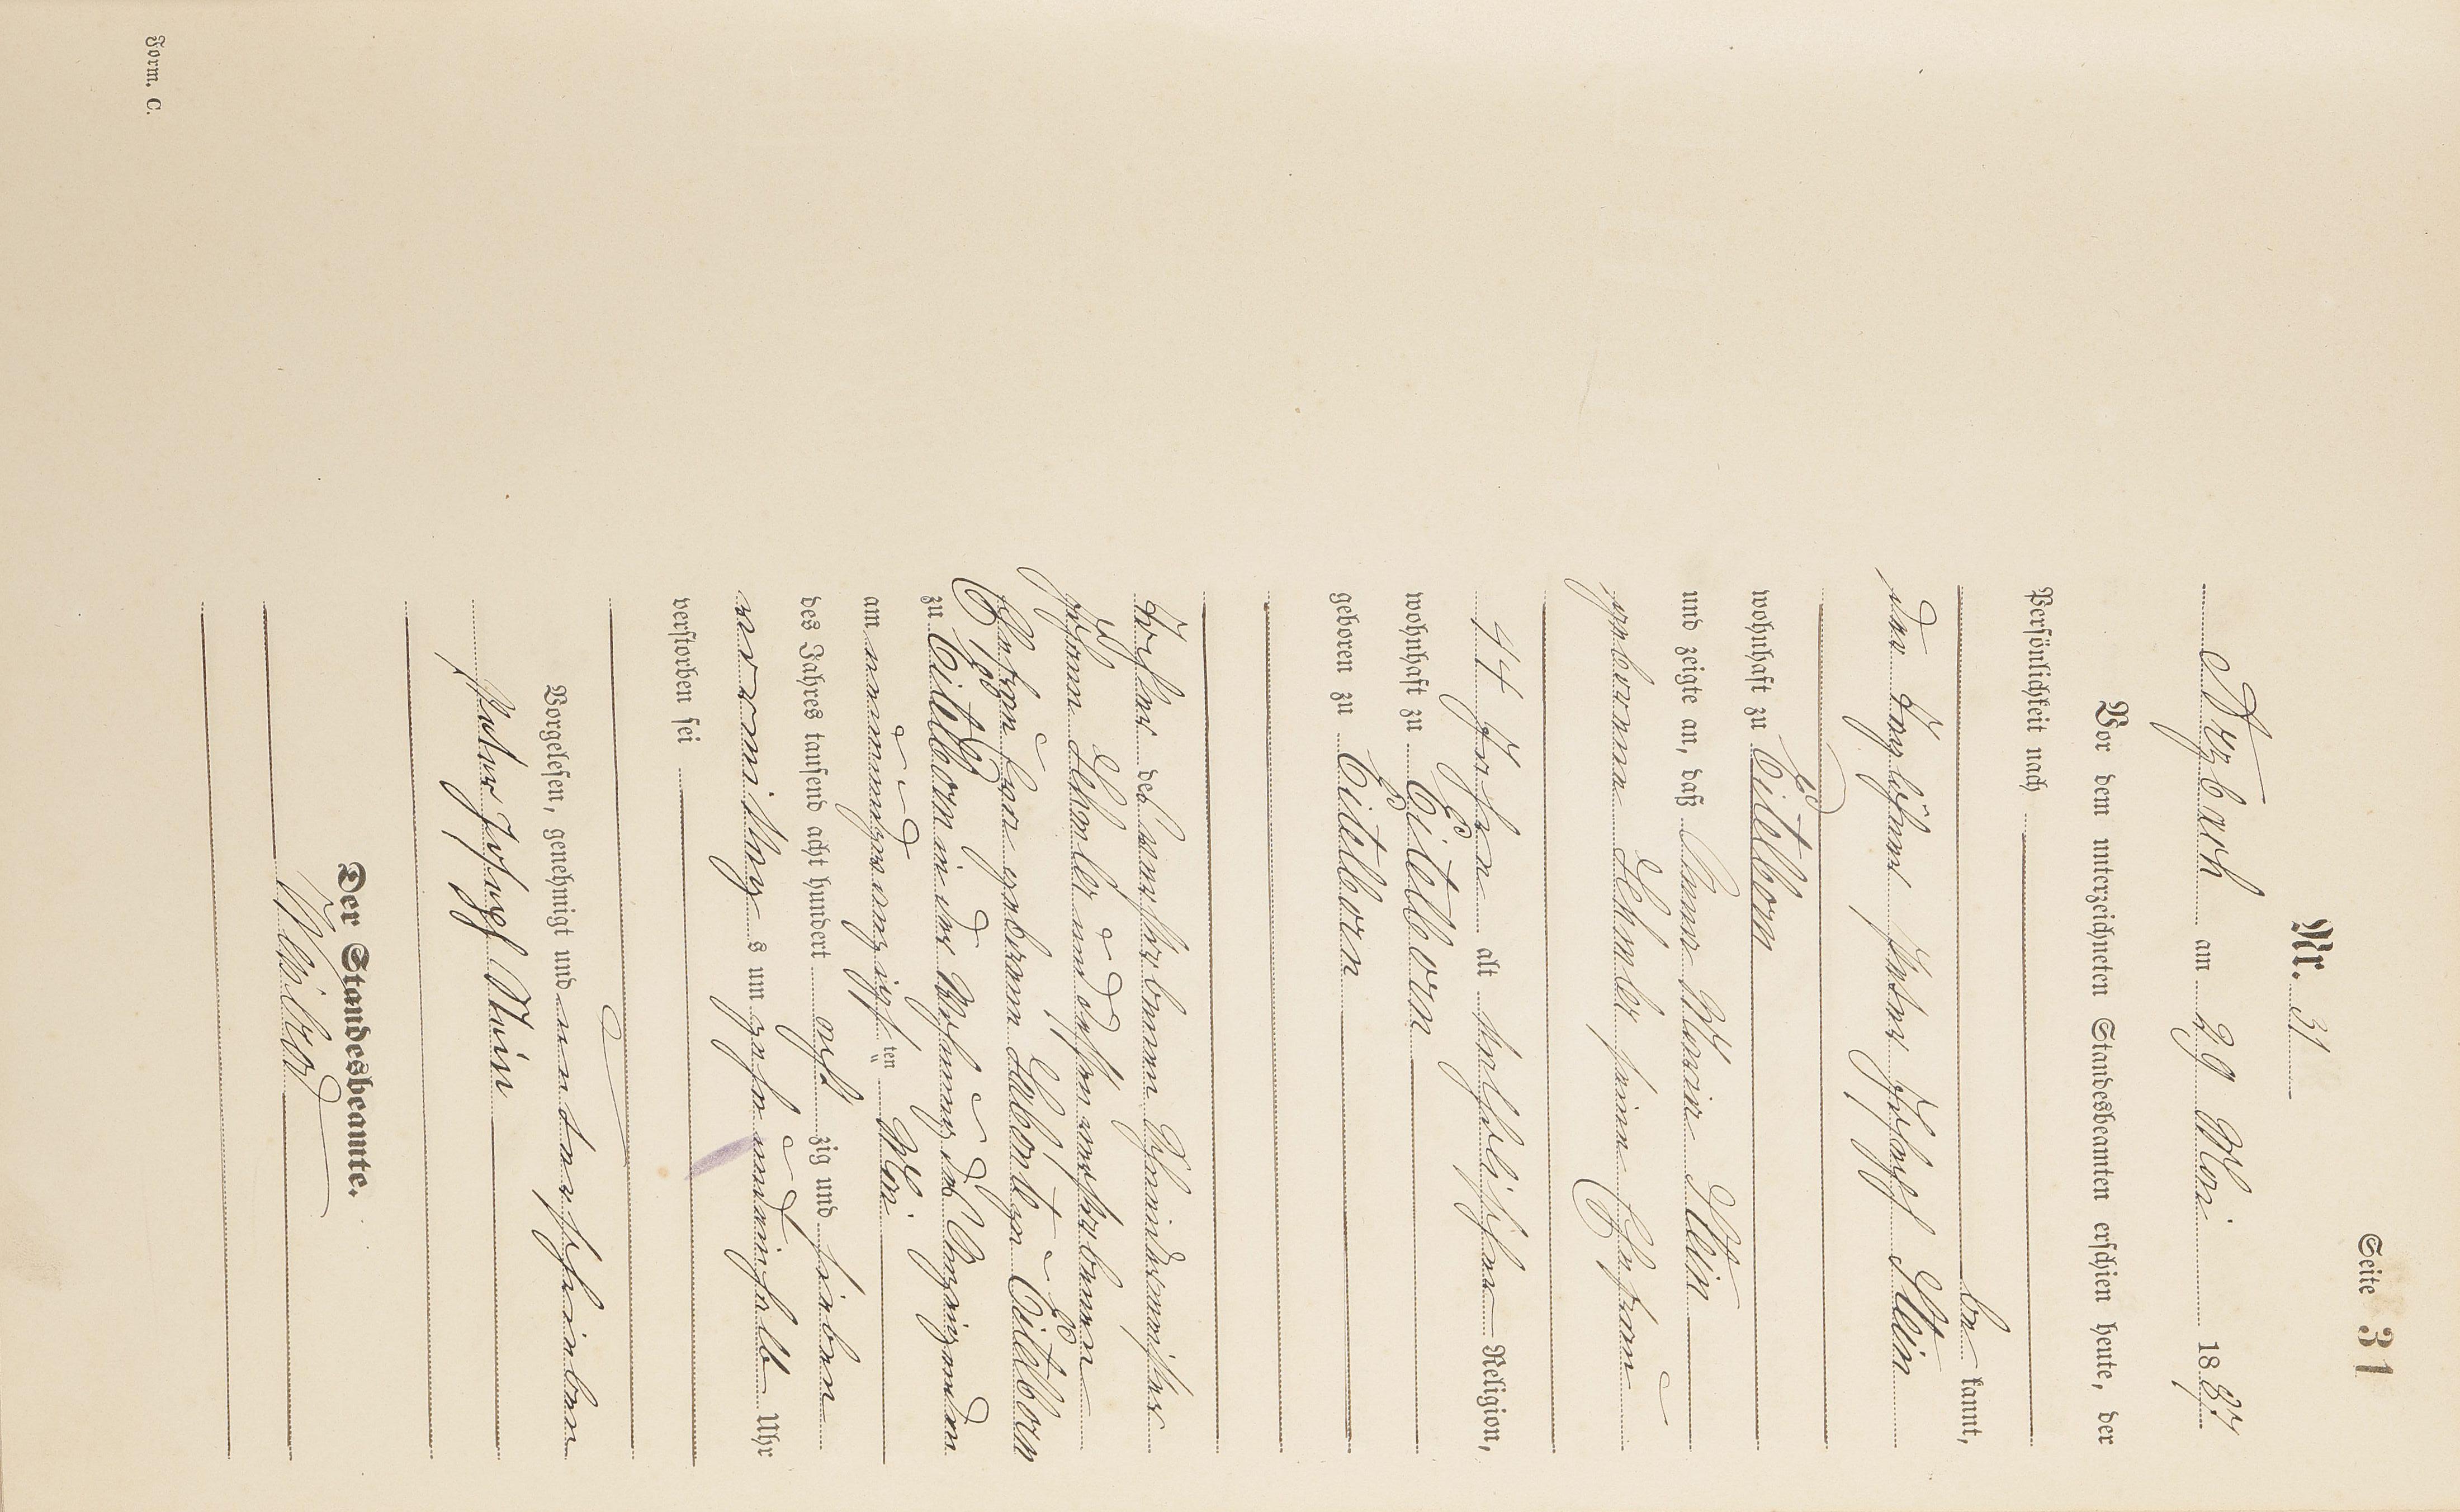 Seite 31
Nr. 31
Arzbach am 29 Mai 1887
Vor dem unterzeichneten Standesbeamten erschien heute, der
Persönlichkeit nach
be kannt,
der Taglöhner Peter Joseph Stein
wohnhaft zu Eitelborn
und zeigte an, daß Anna Maria Stein
geborenne seine Ehefrau
44 Jahre alt katholischer Religion,
wohnhaft zu Eitelborn
geboren zu Eitelborn
Tochter des verstorbenen
Johann und dessen verstorbenen
Ehefrau geborenen zu Eitelborn
zu Eitelborn in der Wohnung des Anzeigenden
am neunundzwanzigsten Mai
des Jahres tausend acht hundert acht zig und sieben
vormittags um zehn und einhalb Uhr
verstorben sei
Vorgelesen, genehmigt und unterschrieben
Peter Joseph Stein
Der Standesbeamte.
Form. C.